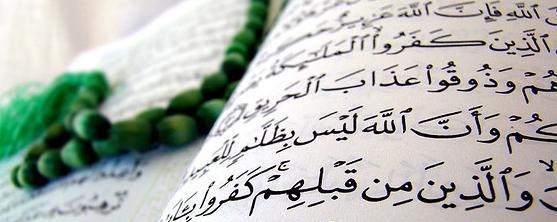 ٱللَّهِ فَإِنَّ ٱللَّهَ عَزِيزٌ
ٱلَّذِينَ كَفَرُوا۟ ٱلْمَلَٰٓئِكَةُ
هُمْ وَذُوقُوا۟ عَذَابَ ٱلْحَرِيقِ
كُمْ وَأَنَّ ٱللَّهَ لَيْسَ بِظَلَّٰمٍ لِّلْعَبِيدِ
وَٱلَّذِينَ مِن قَبْلِهِمْ ۚ كَفَرُوا۟